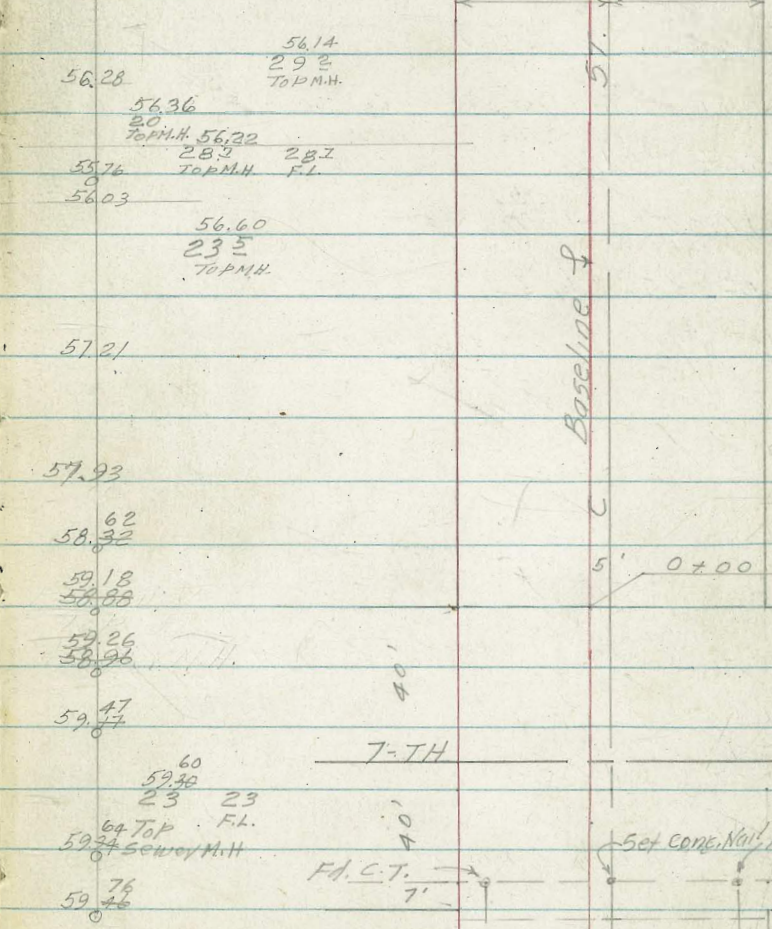 56.14
29 2
Top M.H.
56.28
56.36
20
Top M.H.
56.22
28 2
28 1
Top M.H.
F.L.
55.76
56.03
56.60
23 5
Top M.H.
57.21
57.93
62
58.32
59.18
58.88
59.26
58.96
47
59.17
60
59.30
23
23
Top
F.L.
64
59.34
Sewer M.H
76
59.46
51.
Baseline
C
5'
0+00
40'
7-TH
40'
Fd. C.T.
7'
Set Conc. Nail